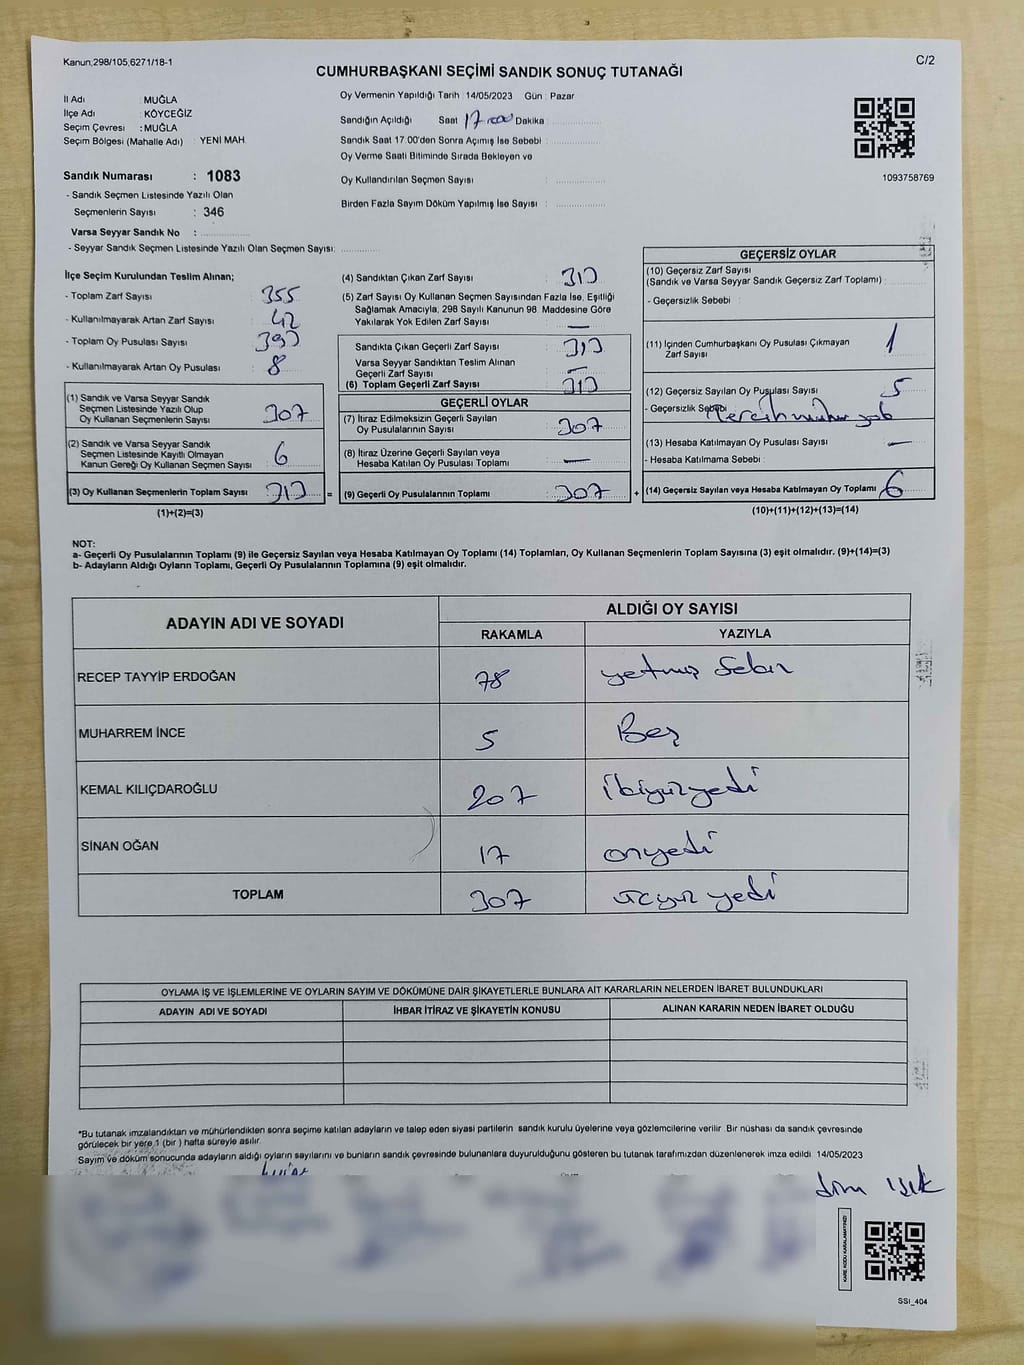 Kanun,298/105,6271/18-1
C/2
CUMHURBAŞKANI SEÇİMİ SANDIK SONUÇ TUTANAĞI
İl Adı : MUĞLA
İlçe Adı : KÖYCEĞİZ
Seçim Çevresi : MUĞLA
Seçim Bölgesi (Mahalle Adı) : YENİ MAH.
Oy Vermenin Yapıldığı Tarih : 14/05/2023 Gün : Pazar
Sandığın Açıldığı Saat 17 Dakika :
Sandık Saat 17.00'den Sonra Açımış İse Sebebi :
Oy Verme Saati Bitiminde Sırada Bekleyen ve
Oy Kullandırılan Seçmen Sayısı :
Birden Fazla Sayım Döküm Yapılmış İse Sayısı :
1093758769
Sandık Numarası : 1083
- Sandık Seçmen Listesinde Yazılı Olan
Seçmenlerin Sayısı : 346
Varsa Seyyar Sandık No :
- Seyyar Sandık Seçmen Listesinde Yazılı Olan Seçmen Sayısı:
İlçe Seçim Kurulundan Teslim Alınan;
- Toplam Zarf Sayısı : 355
- Kullanılmayarak Artan Zarf Sayısı : 42
- Toplam Oy Pusulası Sayısı
- Kullanılmayarak Artan Oy Pusulası : 8
(1) Sandık ve Varsa Seyyar Sandık
Seçmen Listesinde Yazılı Olup
Oy Kullanan Seçmenlerin Sayısı : 307
(2) Sandık ve Varsa Seyyar Sandık
Seçmen Listesinde Kayıtlı Olmayan
Kanun Gereği Oy Kullanan Seçmen Sayısı : 6
(3) Oy Kullanan Seçmenlerin Toplam Sayısı : 313 =
(1)+(2)=(3)
(4) Sandıktan Çıkan Zarf Sayısı : 313
(5) Zarf Sayısı Oy Kullanan Seçmen Sayısından Fazla İse, Eşitliği
Sağlamak Amacıyla, 298 Sayılı Kanunun 98. Maddesine Göre
Yakılarak Yok Edilen Zarf Sayısı : —
Sandıkta Çıkan Geçerli Zarf Sayısı : 313
Varsa Seyyar Sandıktan Teslim Alınan
Geçerli Zarf Sayısı : —
(6) Toplam Geçerli Zarf Sayısı : 313
GEÇERLİ OYLAR
(7) İtiraz Edilmeksizin Geçerli Sayılan
Oy Pusulalarının Sayısı : 307
(8) İtiraz Üzerine Geçerli Sayılan veya
Hesaba Katılan Oy Pusulası Toplamı : —
(9) Geçerli Oy Pusulalarının Toplamı : 307 +
GEÇERSİZ OYLAR
(10) Geçersiz Zarf Sayısı
(Sandık ve Varsa Seyyar Sandık Geçersiz Zarf Toplamı) :
- Geçersizlik Sebebi :
(11) İçinden Cumhurbaşkanı Oy Pusulası Çıkmayan
Zarf Sayısı : 1
(12) Geçersiz Sayılan Oy Pusulası Sayısı : 5
- Geçersizlik Sebebi : Tercih mührü yok
(13) Hesaba Katılmayan Oy Pusulası Sayısı : —
- Hesaba Katılmama Sebebi :
(14) Geçersiz Sayılan veya Hesaba Katılmayan Oy Toplamı : 6
(10)+(11)+(12)+(13)=(14)
NOT:
a- Geçerli Oy Pusulalarının Toplamı (9) ile Geçersiz Sayılan veya Hesaba Katılmayan Oy Toplamı (14) Toplamları, Oy Kullanan Seçmenlerin Toplam Sayısına (3) eşit olmalıdır. (9)+(14)=(3)
b- Adayların Aldığı Oyların Toplamı, Geçerli Oy Pusulalarının Toplamına (9) eşit olmalıdır.
ADAYIN ADI VE SOYADI
ALDIĞI OY SAYISI
RAKAMLA YAZIYLA
RECEP TAYYİP ERDOĞAN 78 yetmiş Sekiz
MUHARREM İNCE 5 Beş
KEMAL KILIÇDAROĞLU 207 ikiyüzyedi
SİNAN OĞAN 17 onyedi
TOPLAM 307 üçyüz yedi
OYLAMA İŞ VE İŞLEMLERİNE VE OYLARIN SAYIM VE DÖKÜMÜNE DAİR ŞİKAYETLERLE BUNLARA AİT KARARLARIN NELERDEN İBARET BULUNDUKLARI
ADAYIN ADI VE SOYADI İHBAR İTİRAZ VE ŞİKAYETİN KONUSU ALINAN KARARIN NEDEN İBARET OLDUĞU
*Bu tutanak imzalandıktan ve mühürlendikten sonra seçime katılan adayların ve talep eden siyasi partilerin sandık kurulu üyelerine veya gözlemcilerine verilir. Bir nüshası da sandık çevresinde
görülecek bir yere 1 (bir ) hafta süreyle asılır.
Sayım ve döküm sonucunda adayların aldığı oyların sayılarını ve bunların sandık çevresinde bulunanlara duyurulduğunu gösteren bu tutanak tarafımızdan düzenlenerek imza edildi. 14/05/2023
KARE KODU KARALAMAYINIZ!
SSI_404